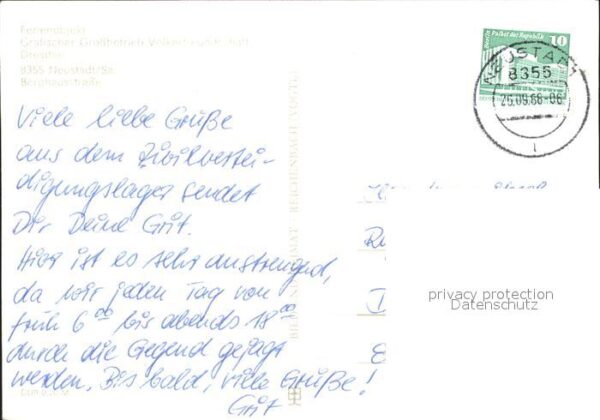 Ferienobjekt
Grafischer Großbetrieb Völkerfreundschaft
Dresden
8355 Neustadt/Sa.
Berghausstraße
Viele liebe Grüße
aus dem Zivilvertei-
digungslager sendet
Dir Deine Grit.
Hier ist es sehr anstrengend,
da wir jeden Tag von
früh 6 00 bis abends 18 00
durch die Gegend gejagt
werden. Bis bald, viele Grüße!
Grit
BILD UND HEIMAT REICHENBACH
Berlin, Palast der Republik
10
NEUSTADT 1
8355
25.09.86-06
privacy protection
Datenschutz